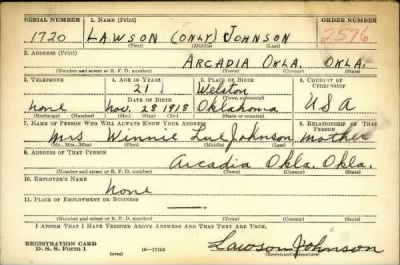 SERIAL NUMBER 1. NAME (Print) ORDER NUMBER
1720 LAWSON (ONLY) JOHNSON 2576
(First) (Middle) (Last)
2. ADDRESS (Print)
ARCADIA OKLA. OKLA.
(Number and street or R. F. D. number) (Town) (County) (State)
3. TELEPHONE 4. AGE IN YEARS 5. PLACE OF BIRTH 6. COUNTRY OF CITIZENSHIP
21 Welston
DATE OF BIRTH (Town or county)
none Nov. 28 1918 Oklahoma USA
(Exchange) (Number) (Mo.) (Day) (Yr.) (State or country)
7. NAME OF PERSON WHO WILL ALWAYS KNOW YOUR ADDRESS 8. RELATIONSHIP OF THAT PERSON
mrs Winnie Lue Johnson mother
(Mr., Mrs., Miss) (First) (Middle) (Last)
9. ADDRESS OF THAT PERSON
Arcadia Okla. Okla.
(Number and street or R. F. D. number) (Town) (County) (State)
10. EMPLOYER'S NAME
None
11. PLACE OF EMPLOYMENT OR BUSINESS
—
(Number and street or R. F. D. number) (Town) (County) (State)
I AFFIRM THAT I HAVE VERIFIED ABOVE ANSWERS AND THAT THEY ARE TRUE.
REGISTRATION CARD
D. S. S. Form 1 (over) Lawson Johnson
(Registrant's signature)